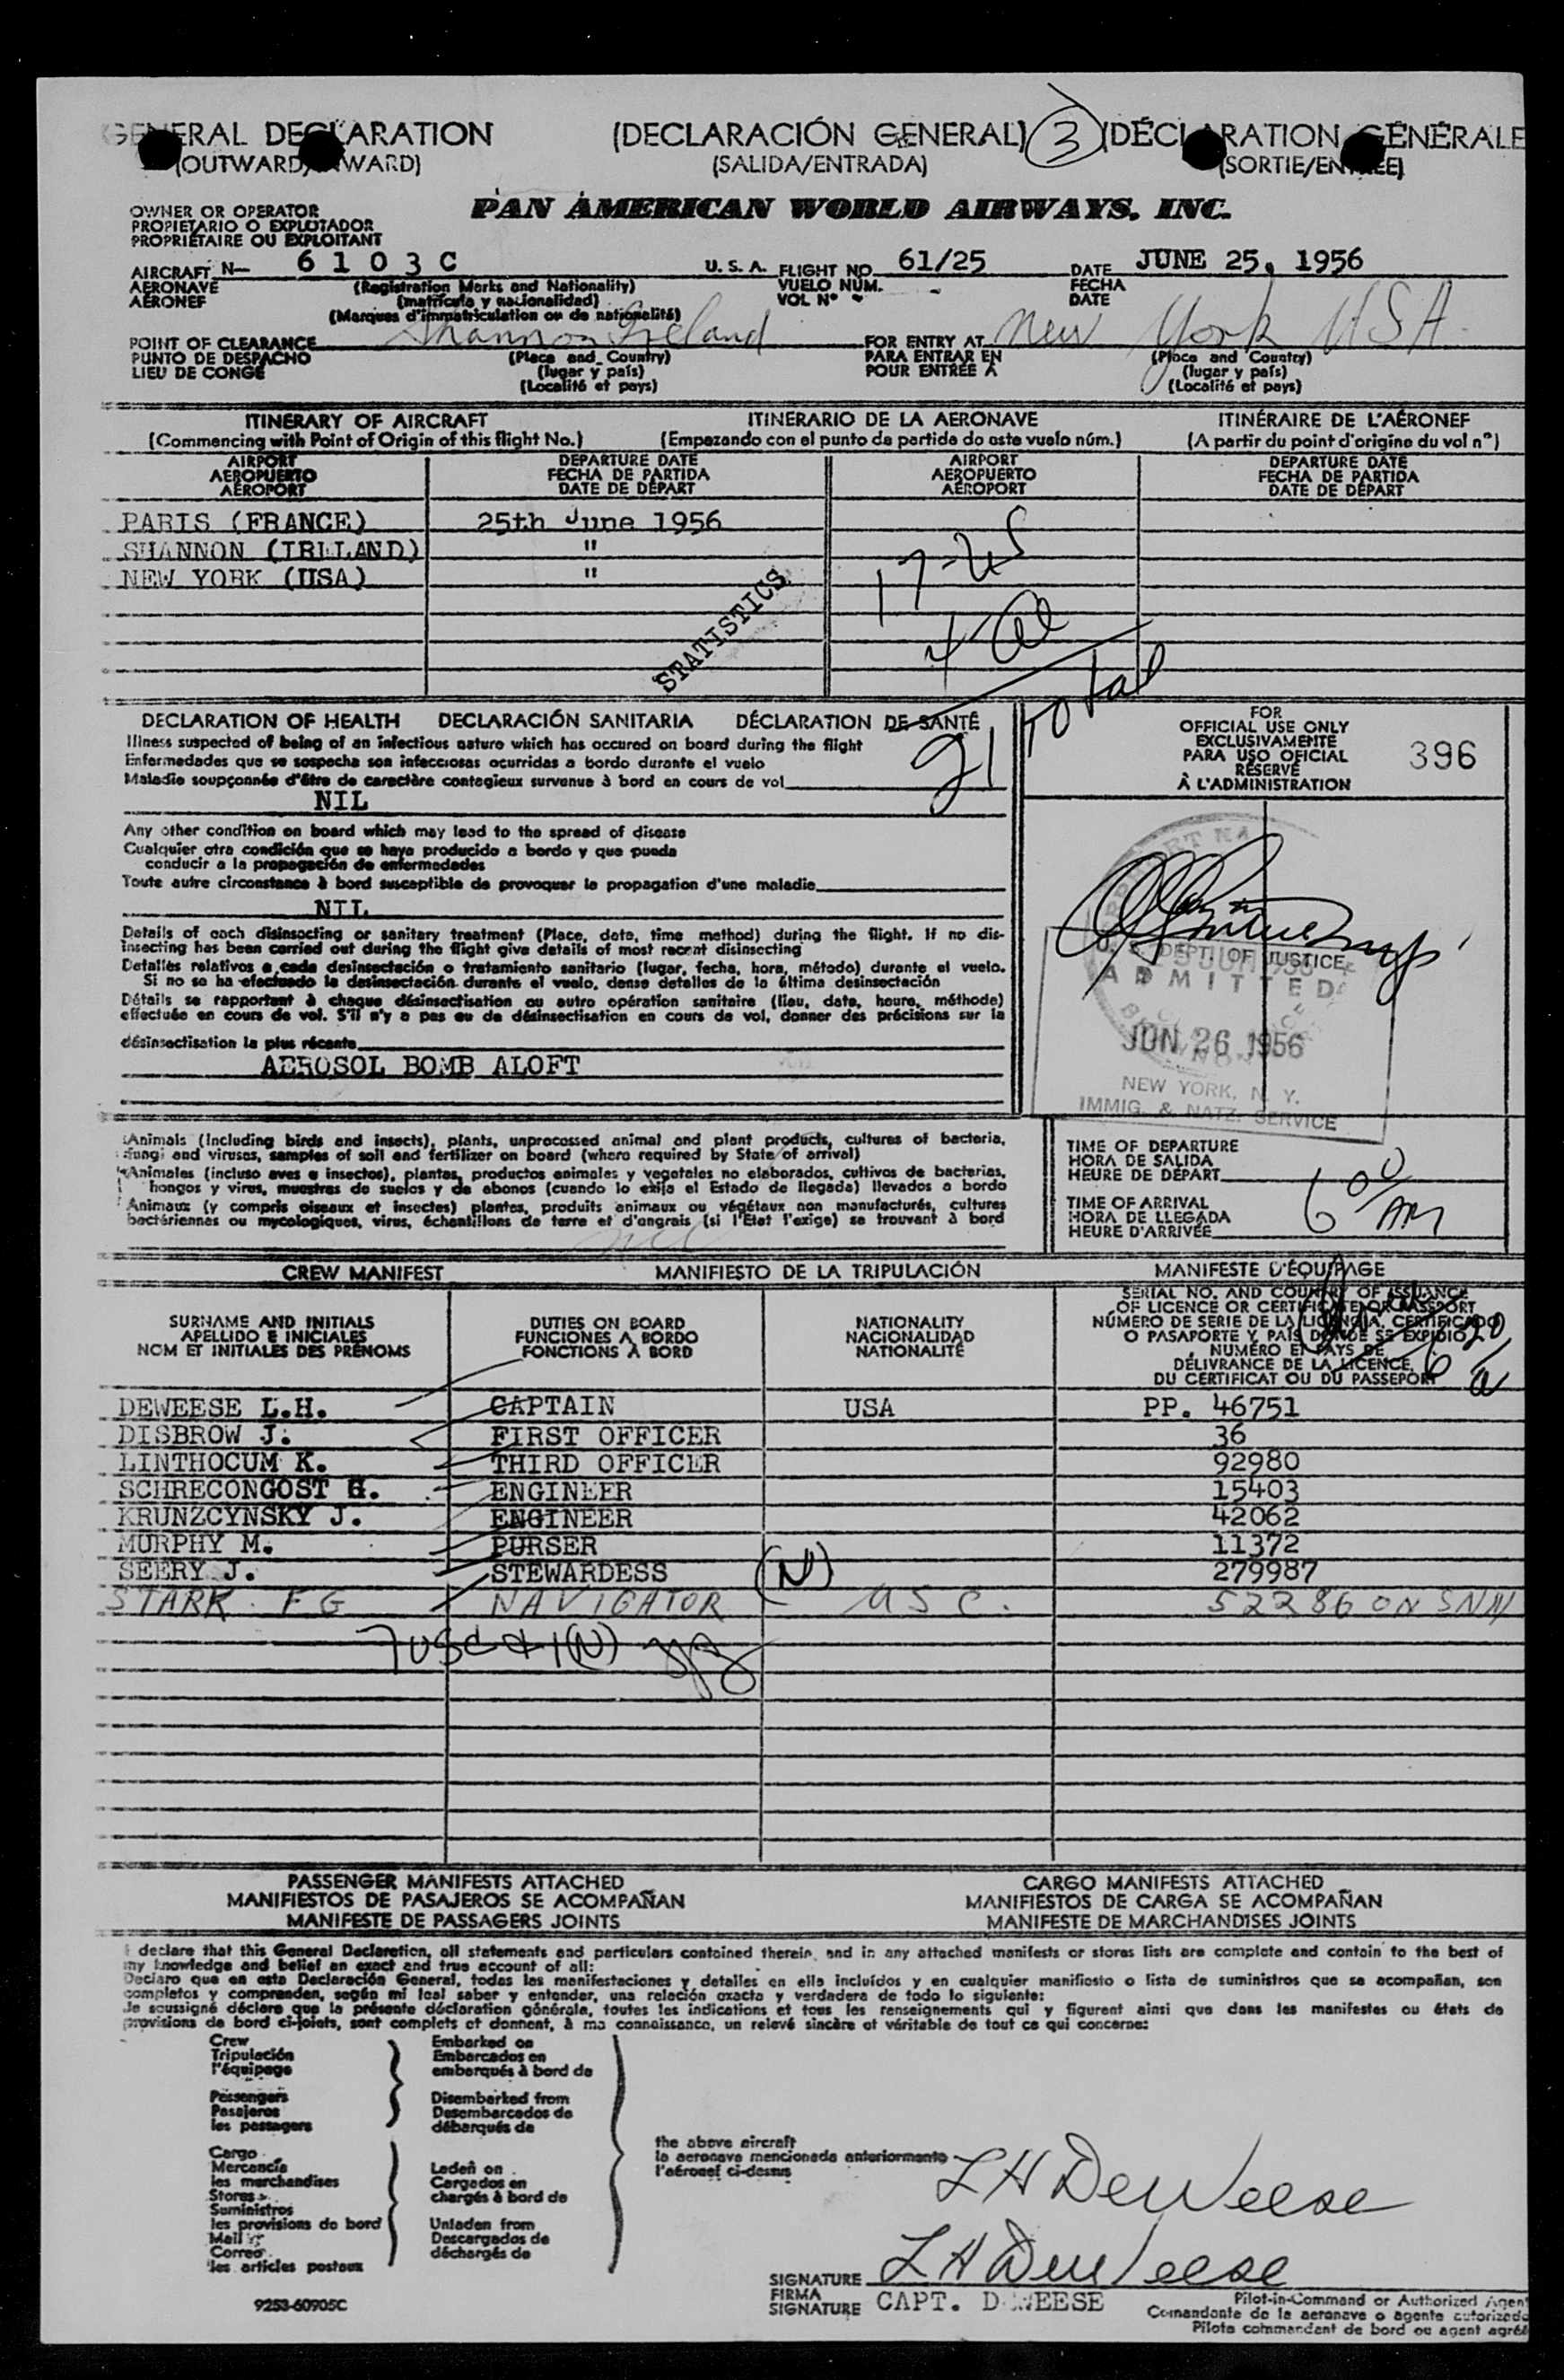 GENERAL DECLARATION (DECLARACIÓN GENERAL) 3 (DÉCLARATION GÉNÉRALE
(OUTWARD/INWARD) (SALIDA/ENTRADA) (SORTIE/ENTRÉE)
OWNER OR OPERATOR
PROPIETARIO O EXPLOTADOR
PROPRIÉTAIRE OU EXPLOITANT
PAN AMERICAN WORLD AIRWAYS, INC.
AIRCRAFT N— 6 1 0 3 C U. S. A. FLIGHT NO. 61/25 DATE JUNE 25, 1956
AERONAVE (Registration Marks and Nationality) VUELO NÚM. FECHA
AÉRONEF (matrícula y nacionalidad) VOL Nº DATE
(Marques d'immatriculation ou de nationalité)
POINT OF CLEARANCE Shannon Ireland FOR ENTRY AT New York USA
PUNTO DE DESPACHO (Place and Country) PARA ENTRAR EN (Place and Country)
LIEU DE CONGÉ (lugar y país) POUR ENTRÉE À (lugar y país)
(Localité et pays) (Localité et pays)
ITINERARY OF AIRCRAFT ITINERARIO DE LA AERONAVE ITINÉRAIRE DE L'AÉRONEF
(Commencing with Point of Origin of this flight No.) (Empezando con el punto de partida do este vuelo núm.) (A partir du point d'origine du vol nº)
AIRPORT DEPARTURE DATE AIRPORT DEPARTURE DATE
AEROPUERTO FECHA DE PARTIDA AEROPUERTO FECHA DE PARTIDA
AÉROPORT DATE DE DÉPART AÉROPORT DATE DE DÉPART
PARIS (FRANCE) 25th June 1956
SHANNON (IRELAND) "
NEW YORK (USA) "
17-US
4 al
STATISTICS
21 Total
DECLARATION OF HEALTH DECLARACIÓN SANITARIA DÉCLARATION DE SANTÉ
Illness suspected of being of an infectious nature which has occured on board during the flight
Enfermedades que se sospecha son infecciosas ocurridas a bordo durante el vuelo
Maladie soupçonnée d'être de caractère contagieux survenue à bord en cours de vol
NIL
Any other condition on board which may lead to the spread of disease
Cualquier otra condición que se haya producido a bordo y que pueda
conducir a la propagación de enfermedades
Toute autre circonstance à bord susceptible de provoquer la propagation d'une maladie
NIL
Details of each disinsecting or sanitary treatment (Place, date, time method) during the flight. If no dis-
insecting has been carried out during the flight give details of most recent disinsecting
Detalles relativos a cada desinsectación o tratamiento sanitario (lugar, fecha, hora, método) durante el vuelo.
Si no se ha efectuado la desinsectación durante el vuelo, dense detalles de la última desinsectación
Détails se rapportant à chaque désinsectisation ou autre opération sanitaire (lieu, date, heure, méthode)
effectuée en cours de vol. S'il n'y a pas eu de désinsectisation en cours de vol, donner des précisions sur la
désinsectisation la plus récente
AEROSOL BOMB ALOFT
FOR
OFFICIAL USE ONLY
EXCLUSIVAMENTE
PARA USO OFICIAL
RESERVÉ
À L'ADMINISTRATION
396
DEPT. OF JUSTICE
ADMITTED
JUN 26 1956
NEW YORK, N. Y.
IMMIG. & NATZ. SERVICE
Animals (Including birds and insects), plants, unprocessed animal and plant products, cultures of bacteria,
fungi and viruses, samples of soil and fertilizer on board (where required by State of arrival)
Animales (incluso aves e insectos), plantas, productos animales y vegetales no elaborados, cultivos de bacterias,
hongos y virus, muestras de suelos y de abonos (cuando lo exija el Estado de llegada) llevados a bordo
Animaux (y compris oiseaux et insectes) plantes, produits animaux ou végétaux non manufacturés, cultures
bactériennes ou mycologiques, virus, échantillons de terre et d'engrais (si l'Etat l'exige) se trouvant à bord
nil
TIME OF DEPARTURE
HORA DE SALIDA
HEURE DE DÉPART
TIME OF ARRIVAL
HORA DE LLEGADA
HEURE D'ARRIVÉE
6 00 AM
CREW MANIFEST MANIFIESTO DE LA TRIPULACIÓN MANIFESTE D'ÉQUIPAGE
SURNAME AND INITIALS
APELLIDO E INICIALES
NOM ET INITIALES DES PRÉNOMS
DUTIES ON BOARD
FUNCIONES A BORDO
FONCTIONS À BORD
NATIONALITY
NACIONALIDAD
NATIONALITÉ
SERIAL NO. AND COUNTRY OF ISSUANCE
OF LICENCE OR CERTIFICATE OR PASSPORT
NÚMERO DE SERIE DE LA LICENCIA, CERTIFICADO
O PASAPORTE Y PAÍS DONDE SE EXPIDIÓ
NUMÉRO ET PAYS DE
DÉLIVRANCE DE LA LICENCE,
DU CERTIFICAT OU DU PASSEPORT
DEWEESE L.H. CAPTAIN USA PP. 46751
DISBROW J. FIRST OFFICER 36
LINTHOCUM K. THIRD OFFICER 92980
SCHRECONGOST H. ENGINEER 15403
KRUNZCYNSKY J. ENGINEER 42062
MURPHY M. PURSER 11372
SEERY J. STEWARDESS (N) 279987
STARK. F G NAVIGATOR USC. 52286 ON SNN
7 USC & 1(N)
PASSENGER MANIFESTS ATTACHED CARGO MANIFESTS ATTACHED
MANIFIESTOS DE PASAJEROS SE ACOMPAÑAN MANIFIESTOS DE CARGA SE ACOMPAÑAN
MANIFESTE DE PASSAGERS JOINTS MANIFESTE DE MARCHANDISES JOINTS
I declare that this General Declaration, all statements and particulars contained therein, and in any attached manifests or stores lists are complete and contain to the best of
my knowledge and belief an exact and true account of all:
Declaro que en esta Declaración General, todas las manifestaciones y detalles en ella incluídos y en cualquier manifiesto o lista de suministros que se acompañan, son
completos y comprenden, según mi leal saber y entender, una relación exacta y verdadera de todo lo siguiente:
Je soussigné déclare que la présente déclaration générale, toutes les indications et tous les renseignements qui y figurent ainsi que dans les manifestes ou états de
provisions de bord ci-joints, sont complets et donnent, à ma connaissance, un relevé sincère et véritable de tout ce qui concerne:
Crew
Tripulación
l'équipage
Passengers
Pasajeros
les passagers
Cargo
Mercancía
les marchandises
Stores
Suministros
les provisions de bord
Mail
Correo
les articles postaux
Embarked on
Embarcados en
embarqués à bord de
Disembarked from
Desembarcados de
débarqués de
Laden on
Cargados en
chargés à bord de
Unladen from
Descargados de
déchargés de
the above aircraft
la aeronave mencionada anteriormente
l'aéronef ci-dessus
L H DeWeese
L H DeWeese
SIGNATURE
FIRMA
SIGNATURE
CAPT. DEWEESE
Pilot-in-Command or Authorized Agent
Comandante de la aeronave o agente autorizado
Pilote commandant de bord ou agent agréé
9253-60905C